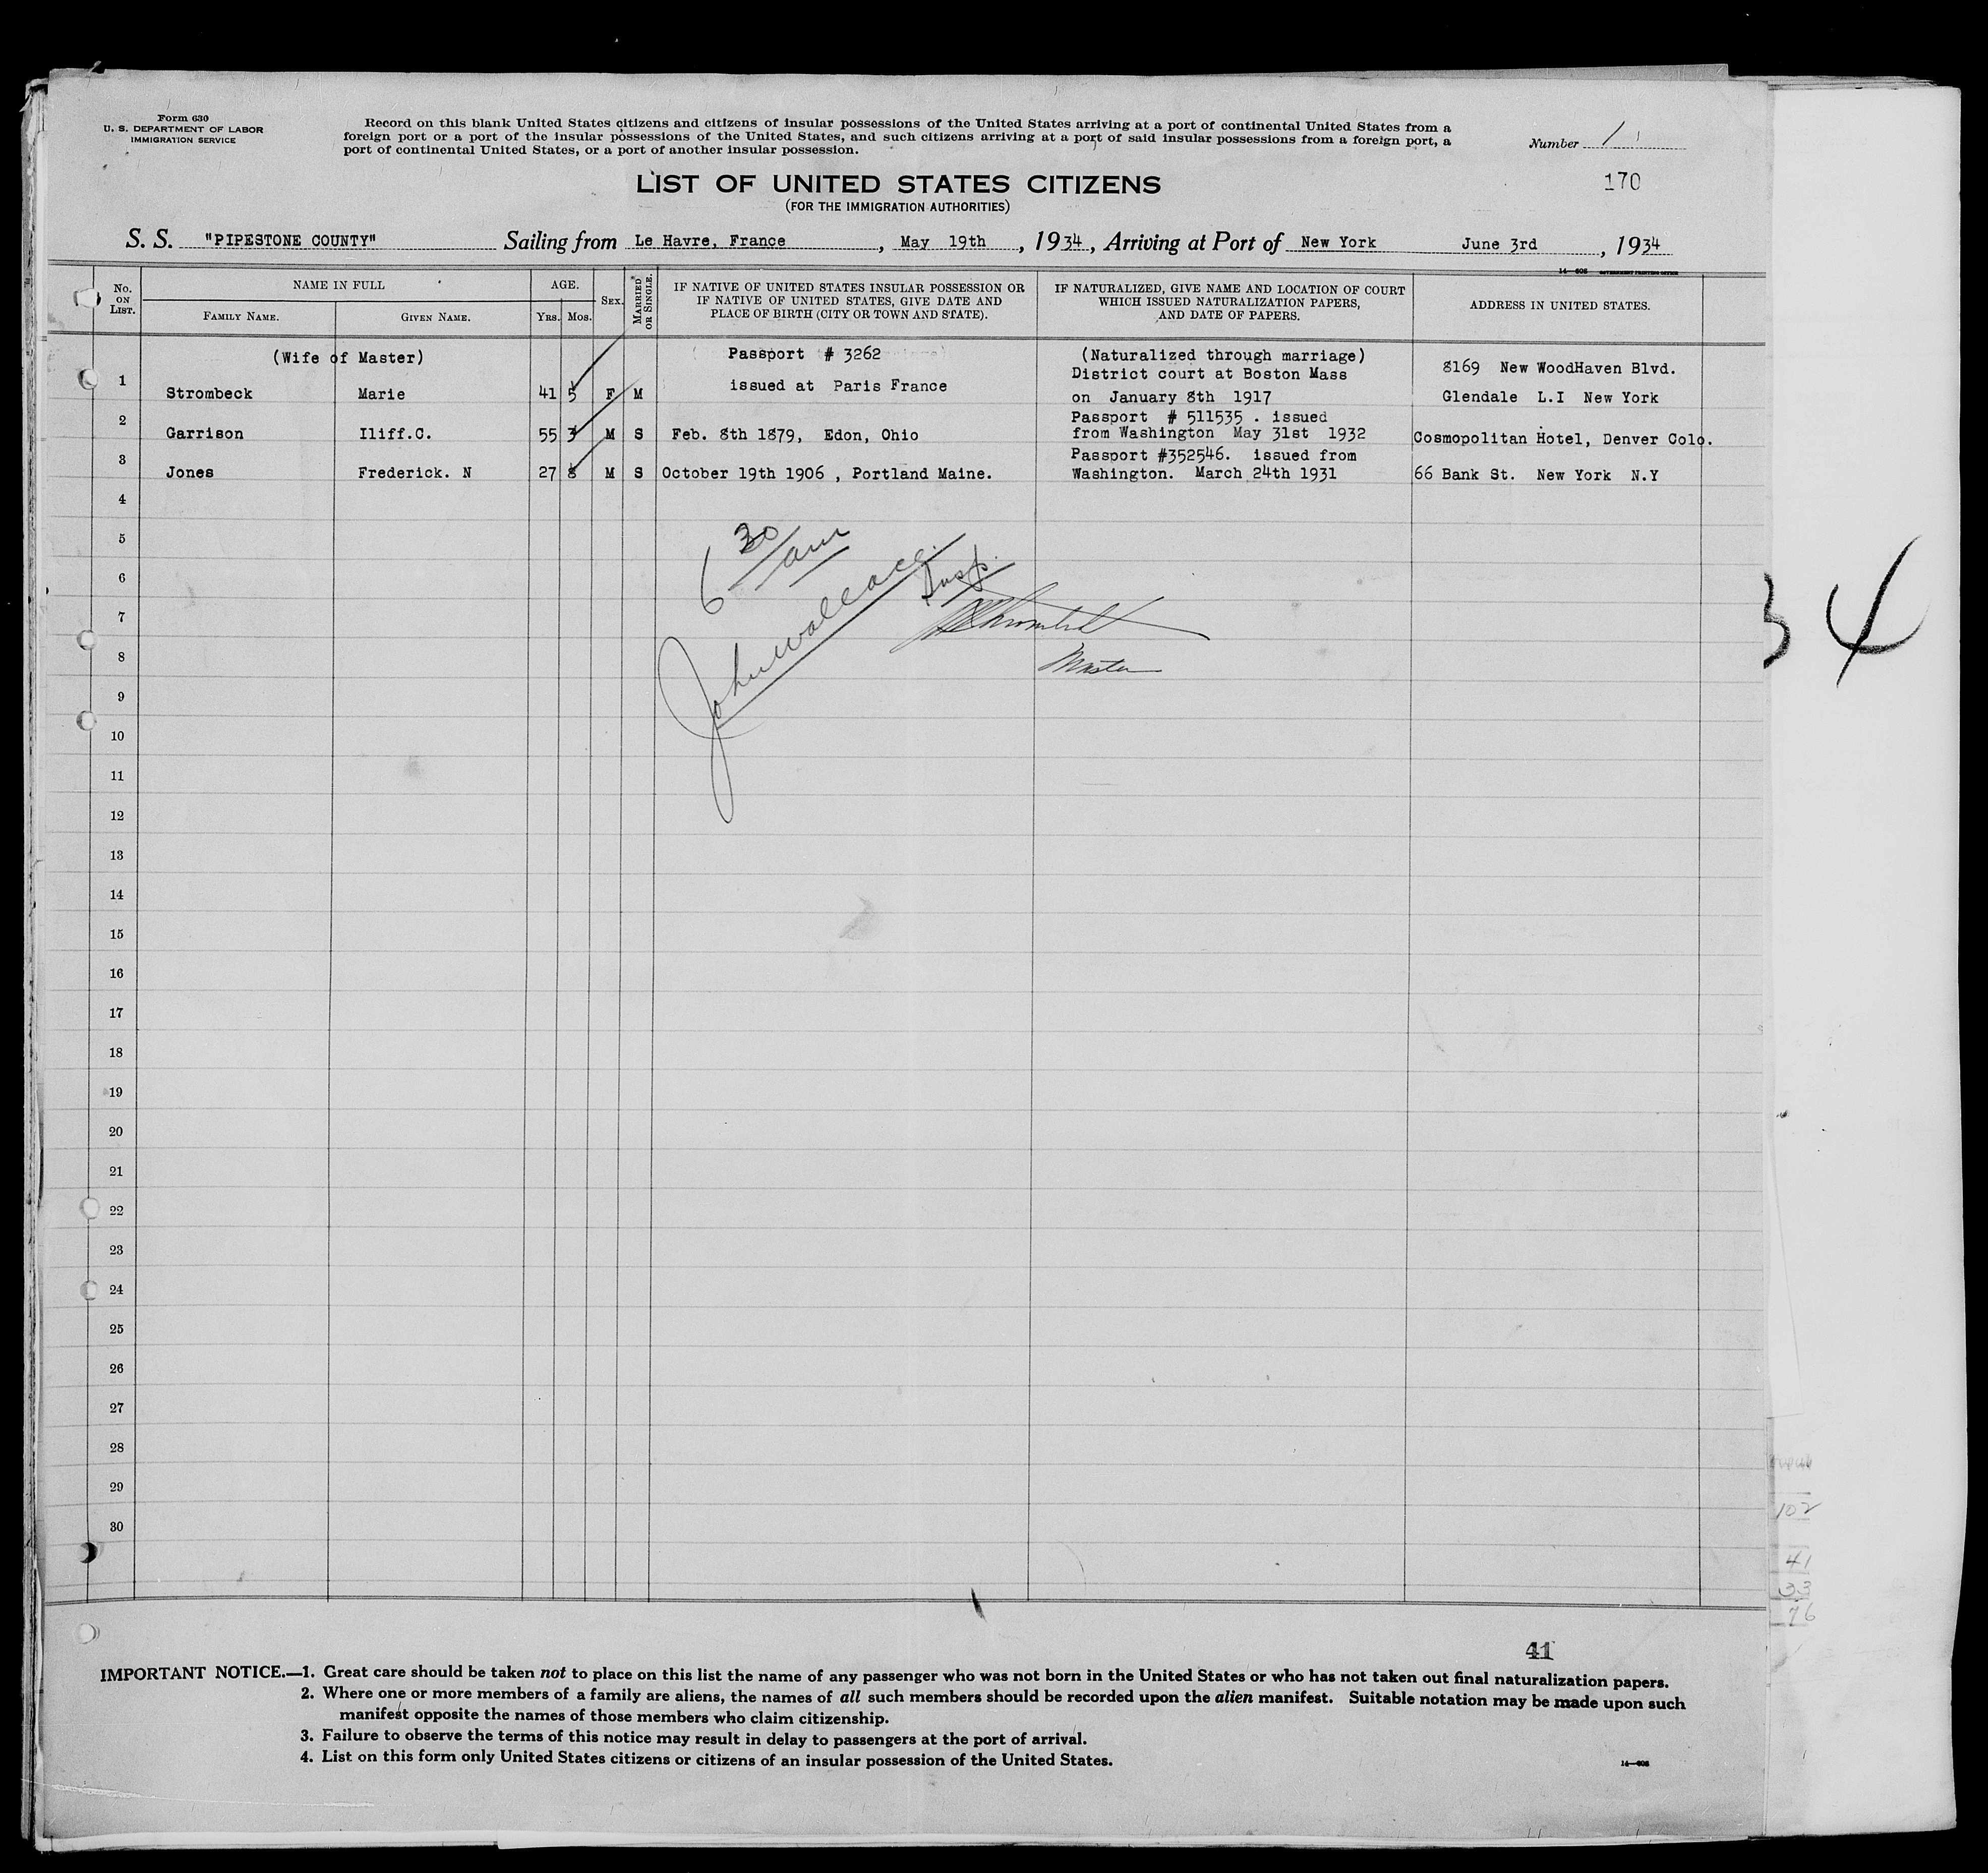 Form 630
U. S. DEPARTMENT OF LABOR
IMMIGRATION SERVICE
Record on this blank United States citizens and citizens of insular possessions of the United States arriving at a port of continental United States from a
foreign port or a port of the insular possessions of the United States, and such citizens arriving at a port of said insular possessions from a foreign port, a
port of continental United States, or a port of another insular possession.
Number 1
170
LIST OF UNITED STATES CITIZENS
(FOR THE IMMIGRATION AUTHORITIES)
S. S. "PIPESTONE COUNTY" Sailing from Le Havre, France, May 19th, 1934, Arriving at Port of New York June 3rd, 1934
No. ON LIST. NAME IN FULL FAMILY NAME. GIVEN NAME. AGE. YRS. MOS. SEX. MARRIED OR SINGLE. IF NATIVE OF UNITED STATES INSULAR POSSESSION OR IF NATIVE OF UNITED STATES, GIVE DATE AND PLACE OF BIRTH (CITY OR TOWN AND STATE). IF NATURALIZED, GIVE NAME AND LOCATION OF COURT WHICH ISSUED NATURALIZATION PAPERS, AND DATE OF PAPERS. ADDRESS IN UNITED STATES.
(Wife of Master) Passport # 3262 (Naturalized through marriage)
District court at Boston Mass 8169 New WoodHaven Blvd.
1 Strombeck Marie 41 5 F M issued at Paris France on January 8th 1917 Glendale L.I New York
Passport # 511535 . issued
2 Garrison Iliff.C. 55 3 M S Feb. 8th 1879, Edon, Ohio from Washington May 31st 1932 Cosmopolitan Hotel, Denver Colo.
Passport #352546. issued from
3 Jones Frederick. N 27 8 M S October 19th 1906 , Portland Maine. Washington. March 24th 1931 66 Bank St. New York N.Y
4
5
6
7
8
9
10
11
12
13
14
15
16
17
18
19
20
21
22
23
24
25
26
27
28
29
30
6 30 am
John Wallace Insp.
Master
34
102
41
33
76
41
IMPORTANT NOTICE.—1. Great care should be taken not to place on this list the name of any passenger who was not born in the United States or who has not taken out final naturalization papers.
2. Where one or more members of a family are aliens, the names of all such members should be recorded upon the alien manifest. Suitable notation may be made upon such
manifest opposite the names of those members who claim citizenship.
3. Failure to observe the terms of this notice may result in delay to passengers at the port of arrival.
4. List on this form only United States citizens or citizens of an insular possession of the United States.